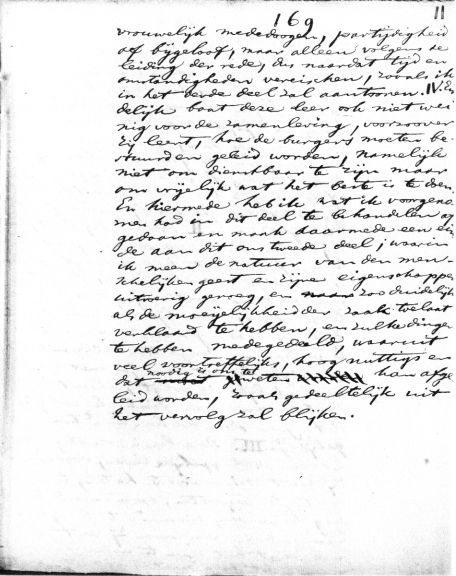 169
11
vrouwelijk mededoogen, partijdigheid
of bijgeloof, maar alleen volgens de
leiding der rede, dus naardat tijd en
omstandigheden vereischen, zooals ik
in het derde deel zal aantoonen. IV. En
delijk baat deze leer ook niet wei
nig voor de zamenleving, voorzoover
zij leert, hoe de burgers moeten be
stuurd en geleid worden, namelijk
niet om dienstbaar te zijn maar
om vrijelijk wat het beste is te doen.
En hiermede heb ik wat ik voorgeno
men had in dit deel te behandelen af
gedaan en maak daarmede een ein
de aan dit ons tweede deel; waarin
ik meen de natuur van den men-
schelijken geest en zijne eigenschappen
uitvoerig genoeg, en zoo duidelijk
als de moeijelijkheid der zaak toelaat
verklaard te hebben, en zulke dingen
te hebben medegedeeld, waaruit
veel voortreffelijks, hoog nuttigs en
dat noodig is om te weten kan afge
leid worden, zooals gedeeltelijk uit
het vervolg zal blijken.